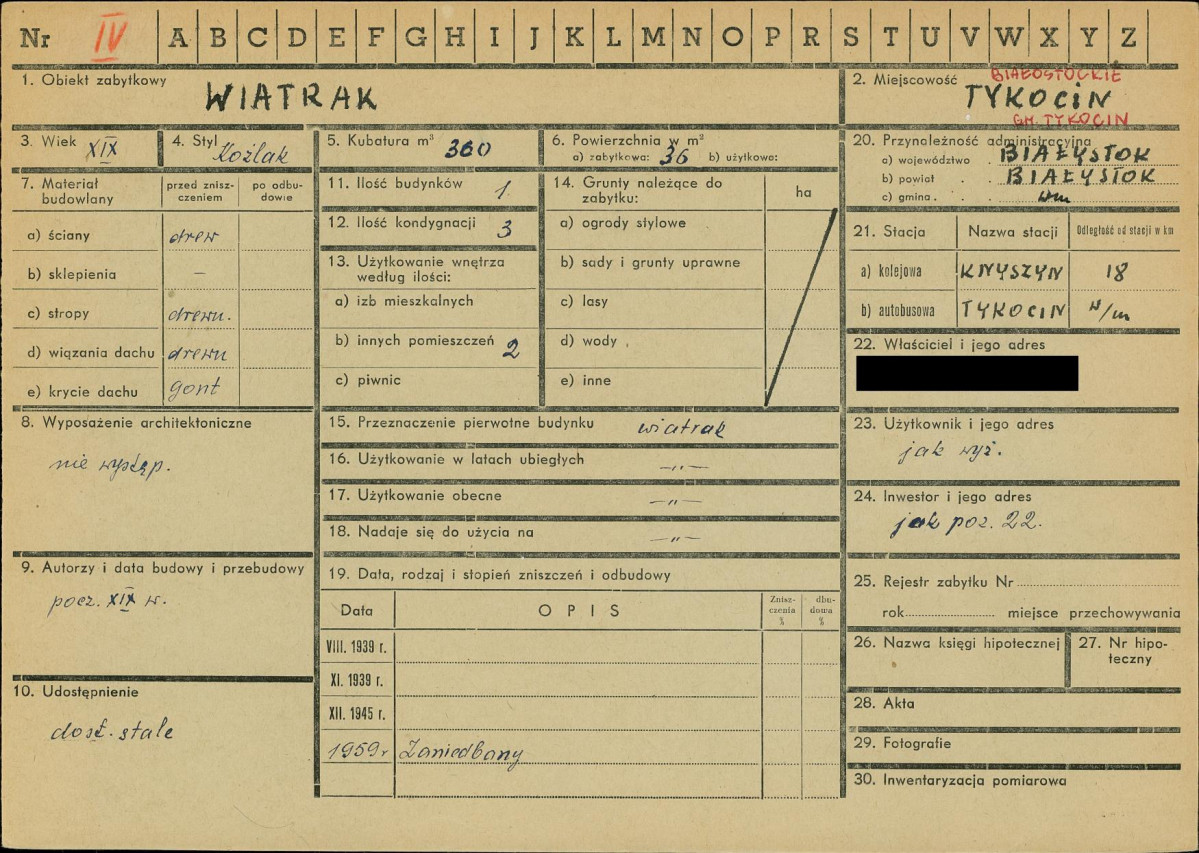 Nr IV A B C D E F G H I J K L M N O P R S T U V W X Y Z
1. Obiekt zabytkowy
WIATRAK
2. Miejscowość
BIAŁOSTOCKIE
TYKOCIN
GM. TYKOCIN
3. Wiek XIX
4. Styl Koźlak
5. Kubatura m³ 360
6. Powierzchnia w m²
a) zabytkowa: 36 b) użytkowa:
7. Materiał budowlany
przed znisz-
czeniem
po odbu-
dowie
a) ściany drew
b) sklepienia –
c) stropy drewn.
d) wiązania dachu drewn
e) krycie dachu gont
8. Wyposażenie architektoniczne
nie występ.
9. Autorzy i data budowy i przebudowy
pocz. XIX w.
10. Udostępnienie
dost. stale
11. Ilość budynków 1
12. Ilość kondygnacji 3
13. Użytkowanie wnętrza
według ilości:
a) izb mieszkalnych
b) innych pomieszczeń 2
c) piwnic
14. Grunty należące do
zabytku:
ha
a) ogrody stylowe
b) sady i grunty uprawne
c) lasy
d) wody
e) inne
15. Przeznaczenie pierwotne budynku wiatrak
16. Użytkowanie w latach ubiegłych —„—
17. Użytkowanie obecne —„—
18. Nadaje się do użycia na —„—
19. Data, rodzaj i stopień zniszczeń i odbudowy
Data
OPIS
Znisz-
czenia
%
dbu-
dowa
%
VIII. 1939 r.
XI. 1939 r.
XII. 1945 r.
1959 r Zaniedbany
20. Przynależność administracyjna
a) województwo BIAŁYSTOK
b) powiat BIAŁYSTOK
c) gmina
21. Stacja
Nazwa stacji
Odległość od stacji w km
a) kolejowa KNYSZYN 18
b) autobusowa TYKOCIN w/m
22. Właściciel i jego adres
23. Użytkownik i jego adres
jak wyż.
24. Inwestor i jego adres
jak poz. 22.
25. Rejestr zabytku Nr
rok miejsce przechowywania
26. Nazwa księgi hipotecznej
27. Nr hipo-
teczny
28. Akta
29. Fotografie
30. Inwentaryzacja pomiarowa